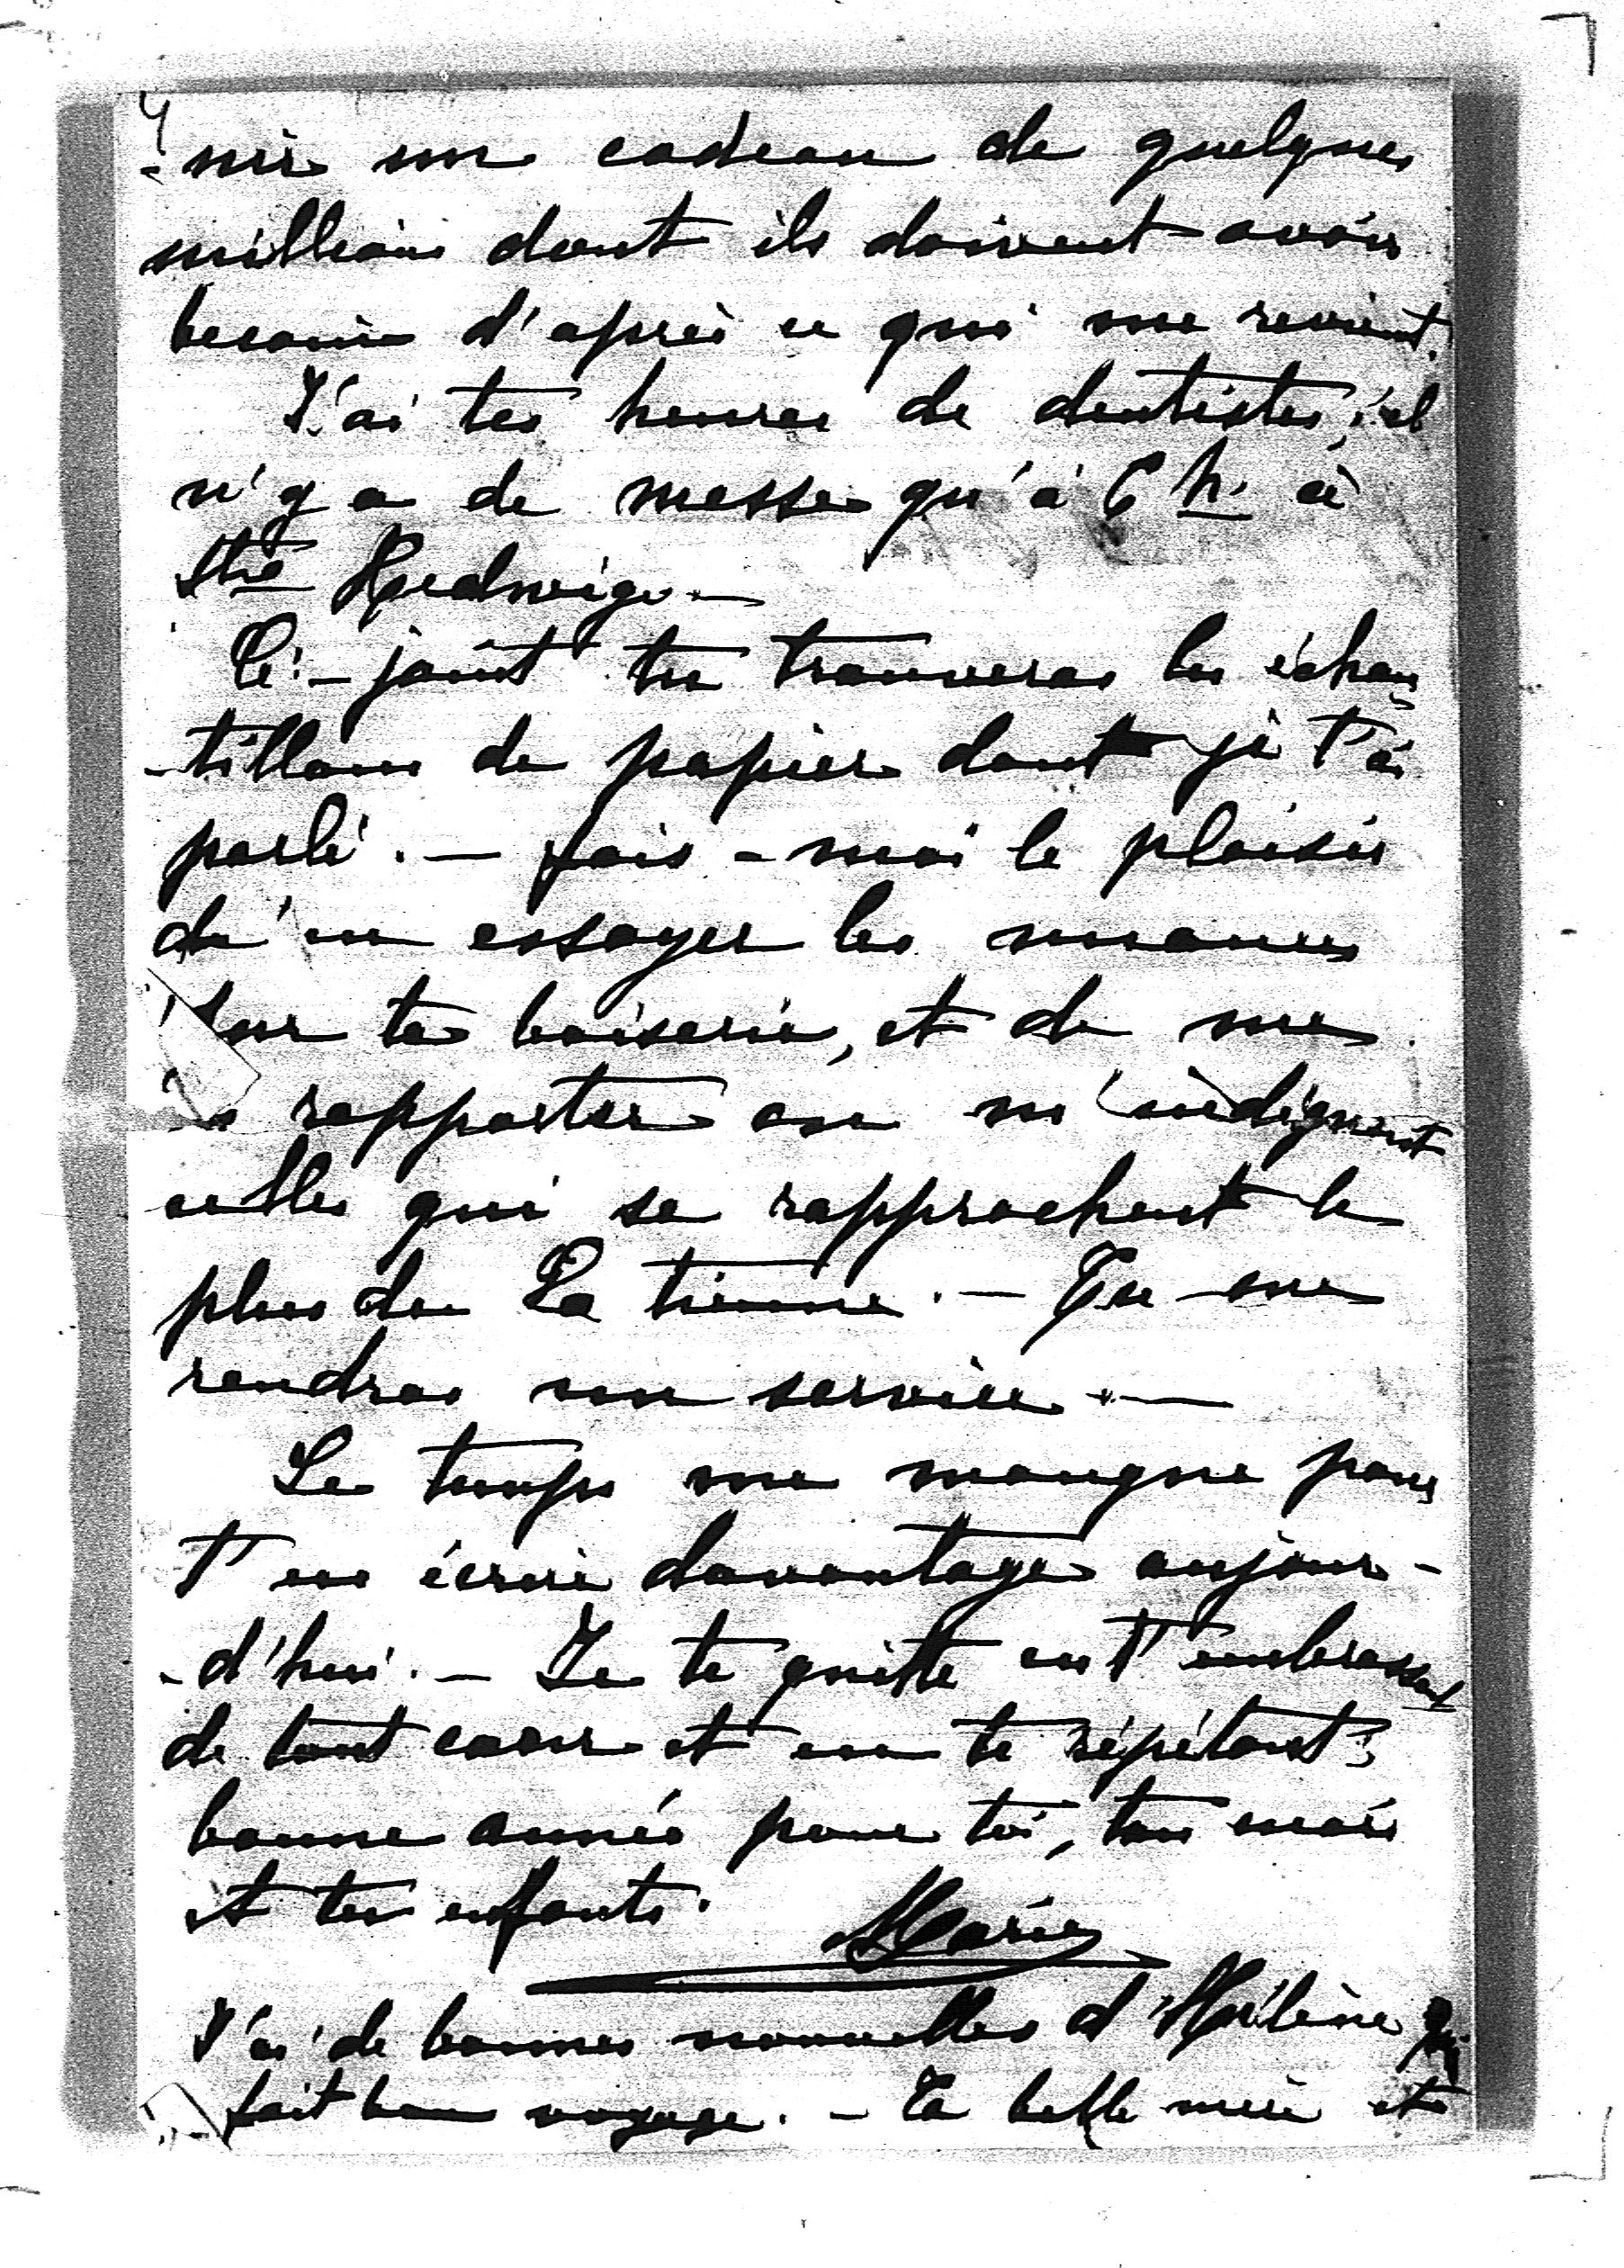 4
-nir un cadeau de quelques
millions dont ils doivent avoir
besoin d'après ce qui me revient.
J'ai tes heures de dentistes; il
n'y a de messe qu'à 6 h. à
Ste Hedwige —
Ci-joint tu trouveras les échan
-tillons de papier dont je t'ai
parlé. — fais-moi le plaisir
d'en essayer les nuances
sur ta boiserie, et de me
rapporter en m'indiquant
celles qui se rapprochent le
plus de La tienne. — Tu me
rendras un service. —
Le temps me manque pour
t'en écrire davantage aujour-
-d'hui. — Je te quitte en t'embrassant
de tout cœur et en te répétant:
bonne année pour toi, ton mari
et tes enfants.
Marie
J'ai de bonnes nouvelles d'Hélène qui
fait bon voyage. — Ta belle mère et